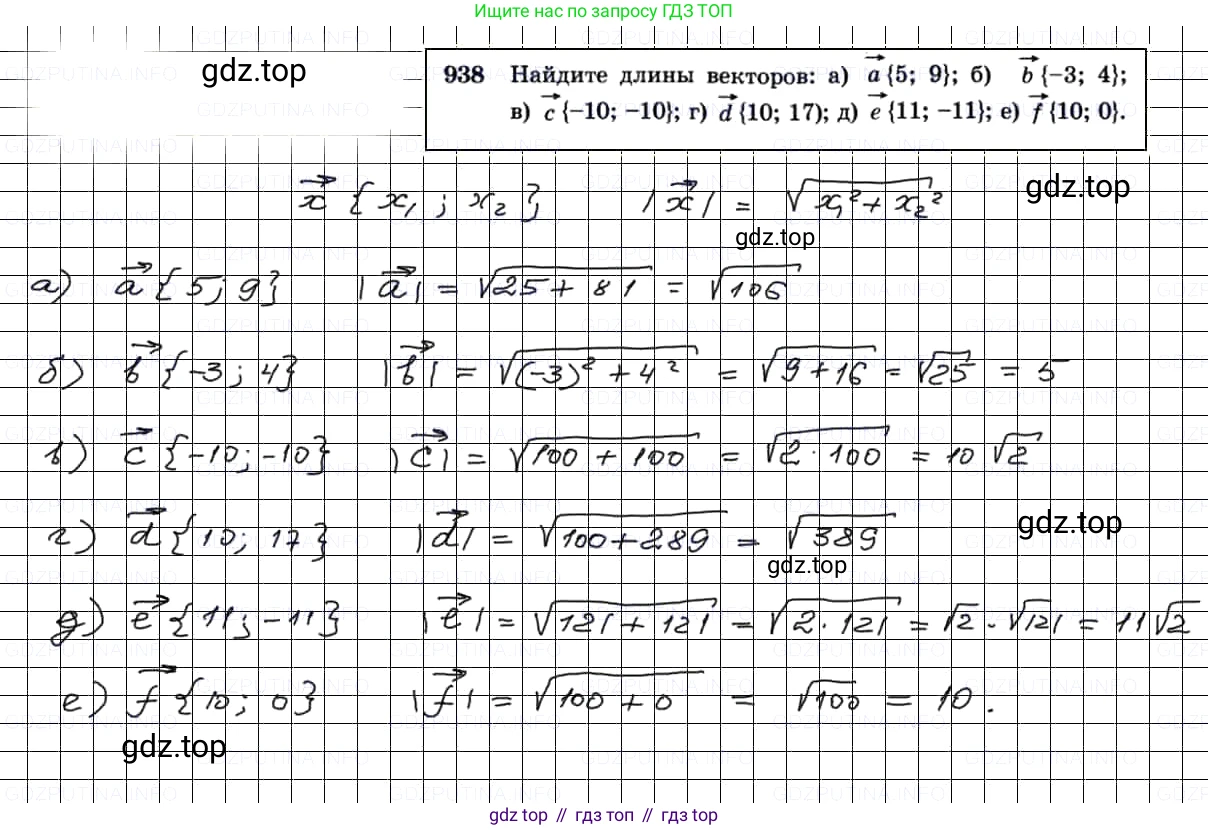 Ищите нас по запросу ГДЗ ТОП
gdz.top
938 Найдите длины векторов: а) a {5; 9}; б) b {–3; 4};
в) c {–10; –10}; г) d {10; 17); д) e {11; –11}; е) f {10; 0}.
x { x₁ ; x₂ }, |x| = √(x₁² + x₂²)
gdz.top
gdz.top
а) a { 5; 9} |a| = √(25 + 81) = √106
б) b {-3 ; 4} |b| = √((-3)² + 4²) = √(9+16) = √25 = 5
в) c {-10; -10} |c| = √(100 + 100) = √(2 · 100) = 10 √2
г) d { 10; 17} |d| = √(100+289) = √389
gdz.top
gdz.top
д) e {11; -11} |e| = √(121 + 121) = √(2 · 121) = √2 · √121 = 11√2
е) f {10; 0} |f| = √(100 + 0) = √100 = 10.
gdz.top
gdz top // гдз топ // gдз top